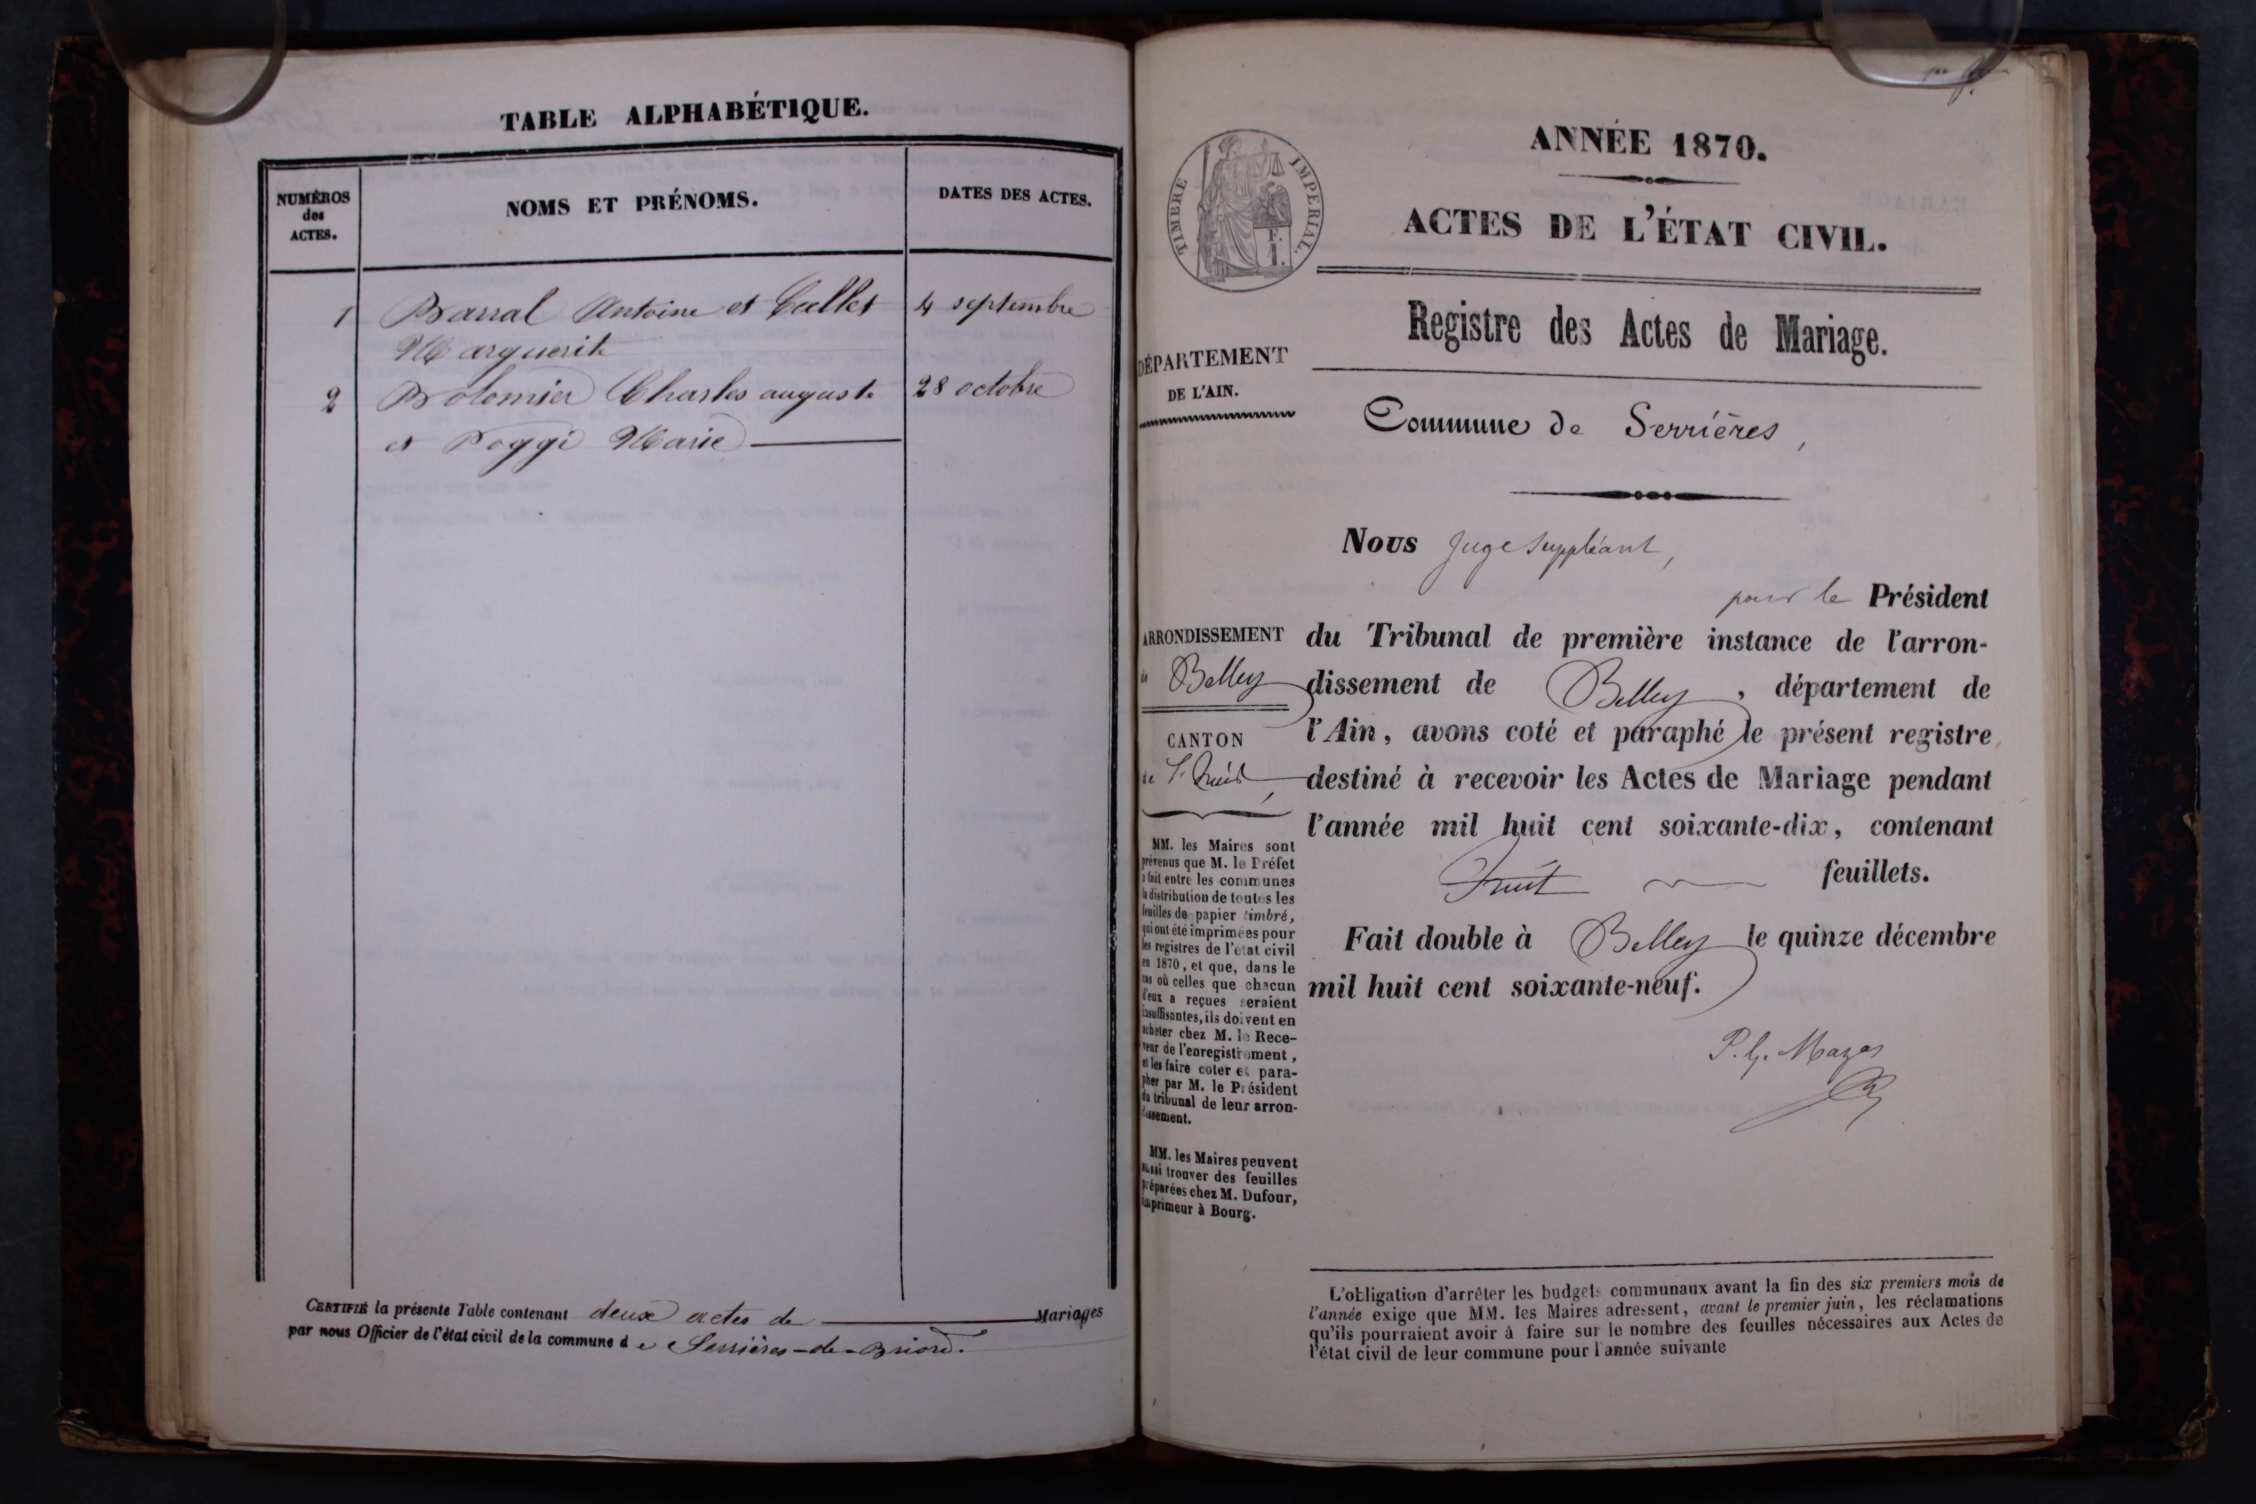 TABLE ALPHABÉTIQUE.
NUMÉROS
des
ACTES.
NOMS ET PRÉNOMS.
DATES DES ACTES.
1 Barral Antoine et Callet 4 septembre
Marguerite
2 Bolomier Charles auguste 28 octobre
et Poggi Marie
CERTIFIÉ la présente Table contenant deux actes de Mariages
par nous Officier de l'état civil de la commune de Serrières-de-Briord.
ANNÉE 1870.
ACTES DE L'ÉTAT CIVIL.
TIMBRE IMPERIAL.
Registre des Actes de Mariage.
DÉPARTEMENT
DE L'AIN.
Commune de Serrières,
Nous Juge suppléant,
pour le Président
du Tribunal de première instance de l'arron-
dissement de Belley, département de
l'Ain, avons coté et paraphé le présent registre
destiné à recevoir les Actes de Mariage pendant
l'année mil huit cent soixante-dix, contenant
huit feuillets.
Fait double à Belley le quinze décembre
mil huit cent soixante-neuf.
Mazas
ARRONDISSEMENT
de Belley
CANTON
de
MM. les Maires sont
prévenus que M. le Préfet
a fait entre les communes
la distribution de toutes les
feuilles de papier timbré,
qui ont été imprimées pour
les registres de l'état civil
en 1870, et que, dans le
cas où celles que chacun
d'eux a reçues seraient
insuffisantes, ils doivent en
acheter chez M. le Rece-
veur de l'enregistrement,
et les faire coter et para-
pher par M. le Président
du tribunal de leur arron-
dissement.
MM. les Maires peuvent
aussi trouver des feuilles
préparées chez M. Dufour,
imprimeur à Bourg.
L'obligation d'arrêter les budgets communaux avant la fin des six premiers mois de
l'année exige que MM. les Maires adressent, avant le premier juin, les réclamations
qu'ils pourraient avoir à faire sur le nombre des feuilles nécessaires aux Actes de
l'état civil de leur commune pour l'année suivante